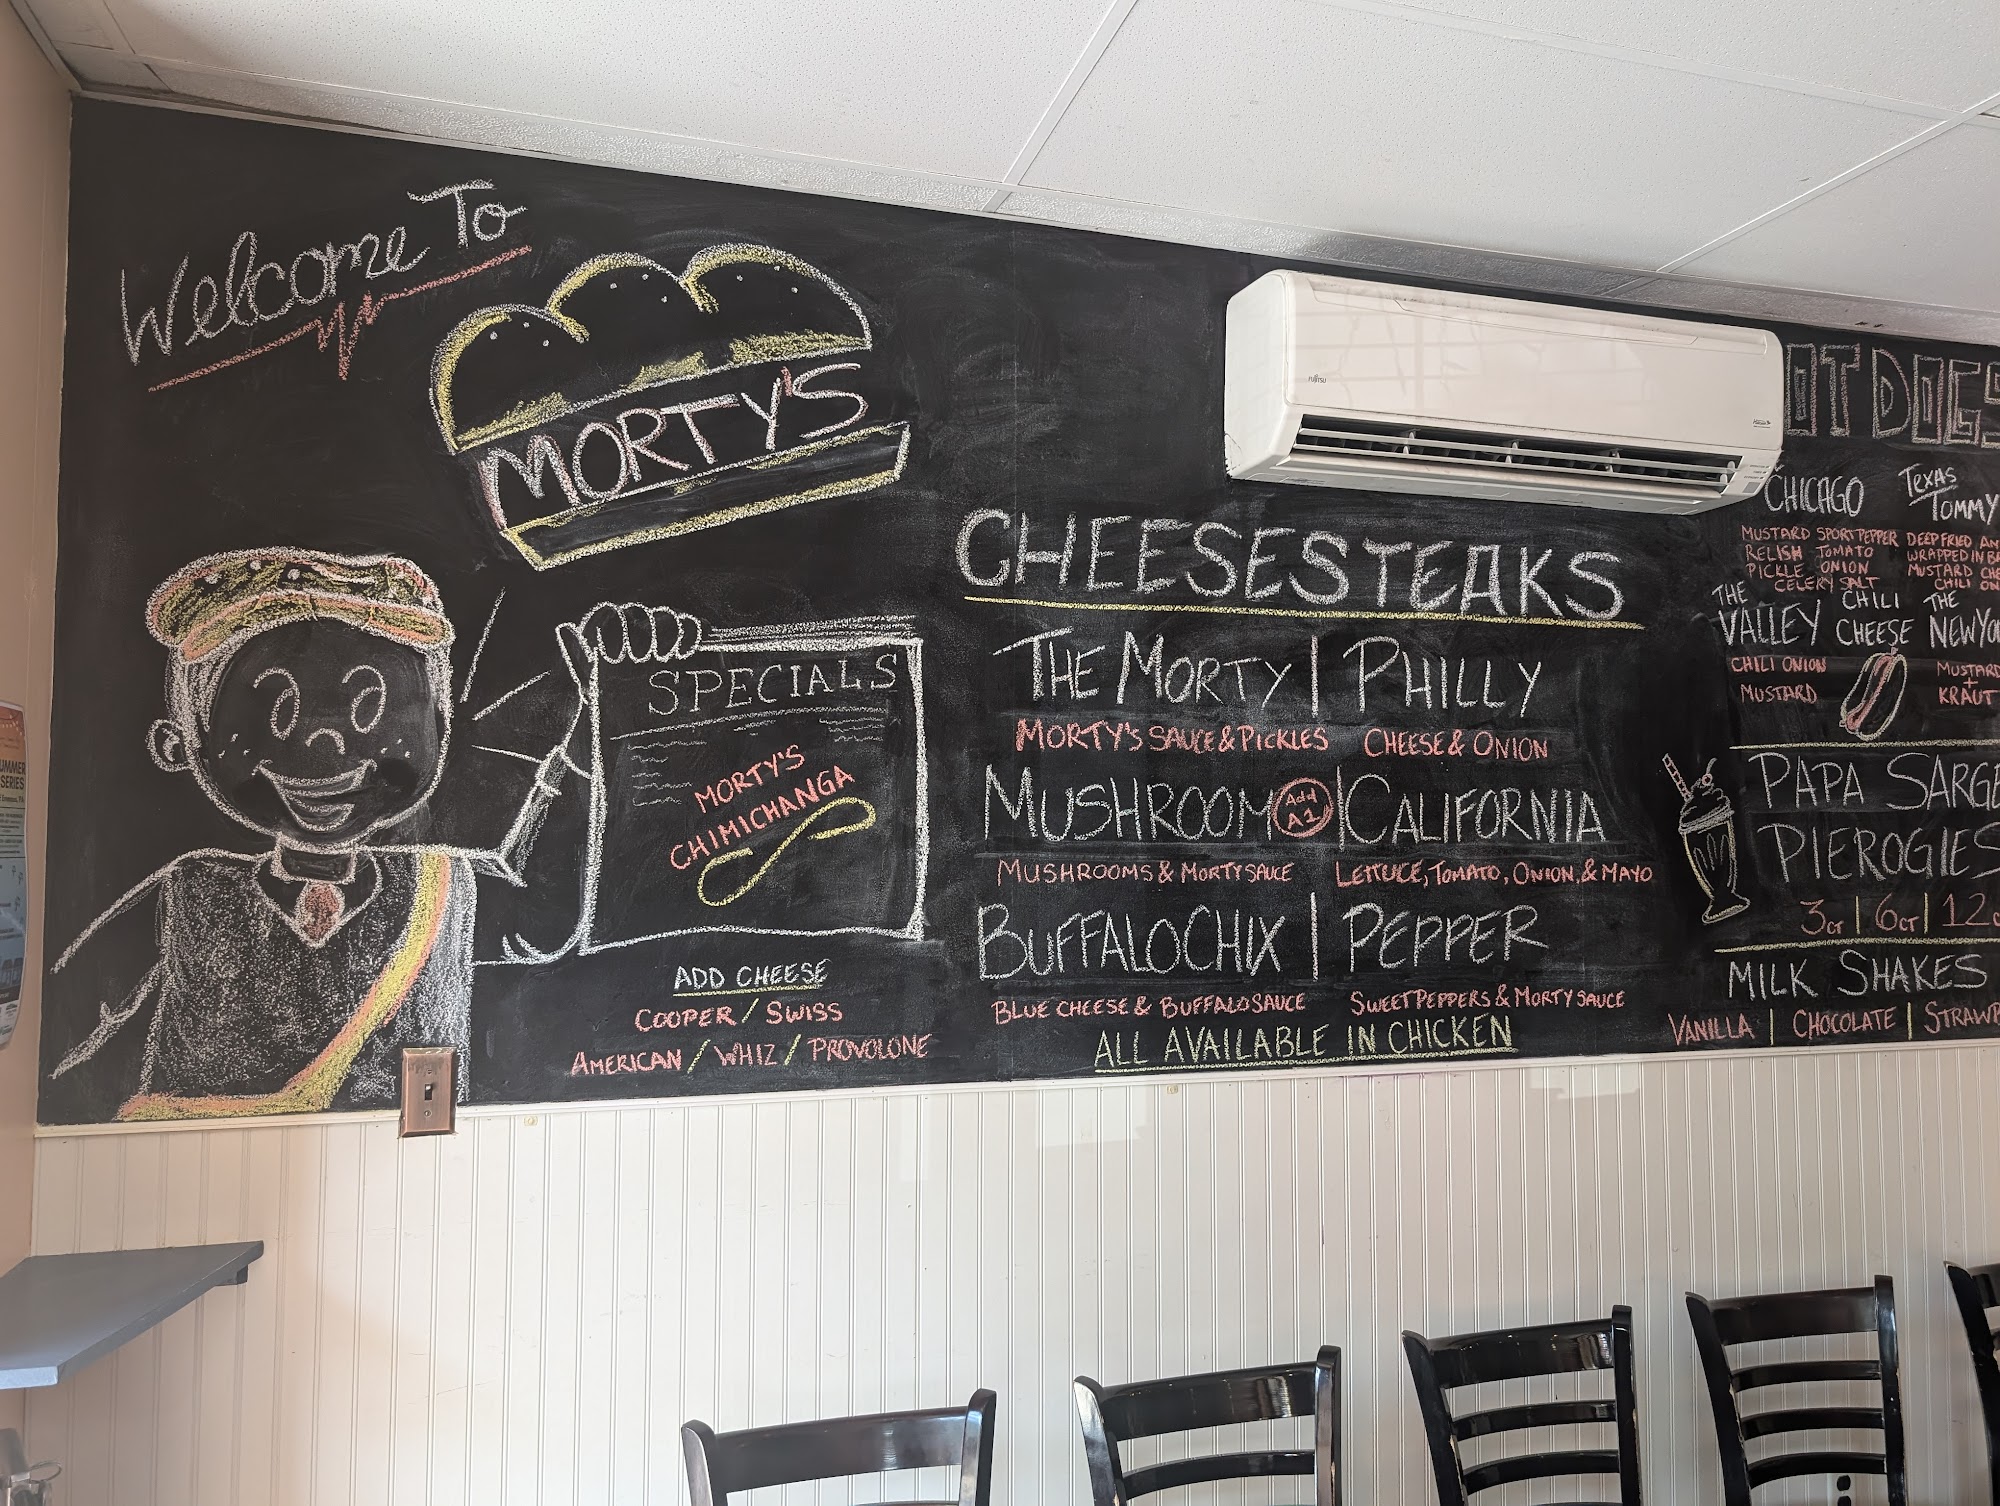 Welcome To
MORTY'S
SPECIALS
MORTY'S
CHIMICHANGA
ADD CHEESE
COOPER / SWISS
AMERICAN / WHIZ / PROVOLONE
FUJITSU
CHEESESTEAKS
THE MORTY | PHILLY
MORTY'S SAUCE & PICKLES CHEESE & ONION
MUSHROOM Add A1 | CALIFORNIA
MUSHROOMS & MORTY SAUCE LETTUCE, TOMATO, ONION, & MAYO
BUFFALO CHIX | PEPPER
BLUE CHEESE & BUFFALO SAUCE SWEET PEPPERS & MORTY SAUCE
ALL AVAILABLE IN CHICKEN
OT DOGS
CHICAGO
MUSTARD SPORT PEPPER
RELISH TOMATO
PICKLE ONION
CELERY SALT
TEXAS
TOMMY
DEEP FRIED AN
WRAPPED IN B
MUSTARD CHE
CHILI ON
THE
VALLEY
CHILI ONION
MUSTARD
CHILI
CHEESE
THE
NEW YO
MUSTARD
+
KRAUT
PAPA SARGE
PIEROGIES
3CT | 6CT | 12C
MILK SHAKES
VANILLA | CHOCOLATE | STRAW
UMME
SERIES